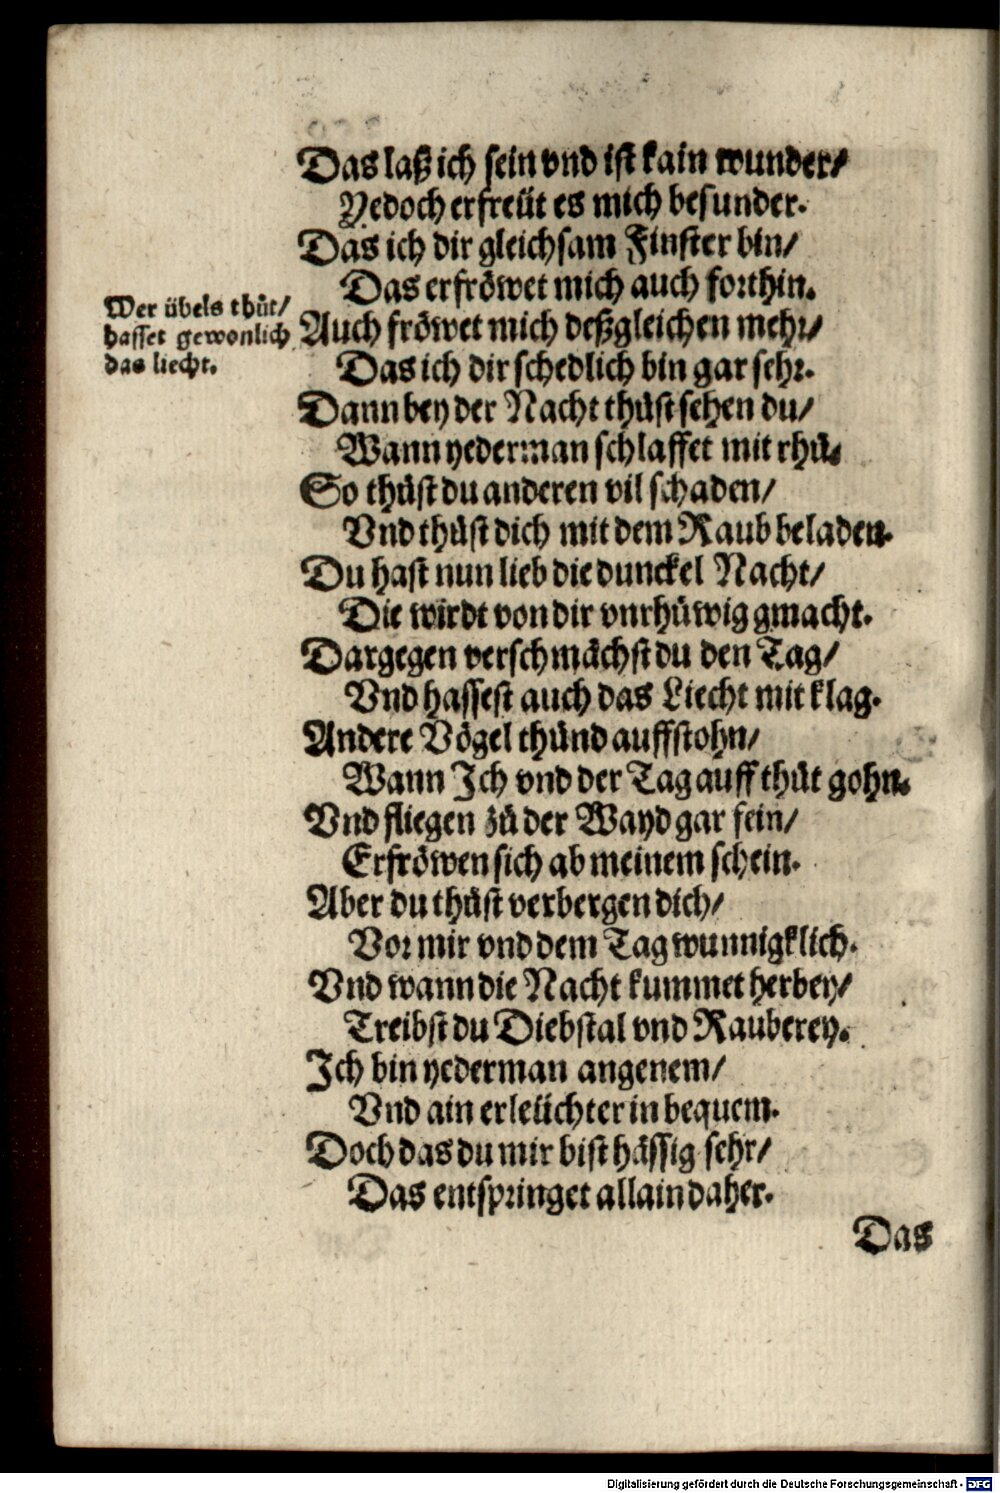 Das laß ich sein vnd ist kain wunder/
Yedoch erfreüt es mich besunder.
Das ich dir gleichsam Finster bin/
Das erfröwet mich auch forthin.
Wer übels thůt/
hasset gewonlich
das liecht.
Auch fröwet mich deßgleichen mehr/
Das ich dir schedlich bin gar sehr.
Dann bey der Nacht thůst sehen du/
Wann yederman schlaffet mit rhů.
So thůst du anderen vil schaden/
Vnd thůst dich mit dem Raub beladen.
Du hast nun lieb die dunckel Nacht/
Die wirdt von dir vnrhüwig gmacht.
Dargegen verschmächst du den Tag/
Vnd hassest auch das Liecht mit klag.
Andere Vögel thünd auffstohn/
Wann Ich vnd der Tag auff thůt gohn.
Vnd fliegen zů der Wayd gar fein/
Erfröwen sich ab meinem schein.
Aber du thůst verbergen dich/
Vor mir vnd dem Tag wunnigklich.
Vnd wann die Nacht kummet herbey/
Treibst du Diebstal vnd Rauberey.
Ich bin yederman angenem/
Vnd ain erleüchterin bequem.
Doch das du mir bist hässig sehr/
Das entspringet allain daher.
Das
Digitalisierung gefördert durch die Deutsche Forschungsgemeinschaft - DFG